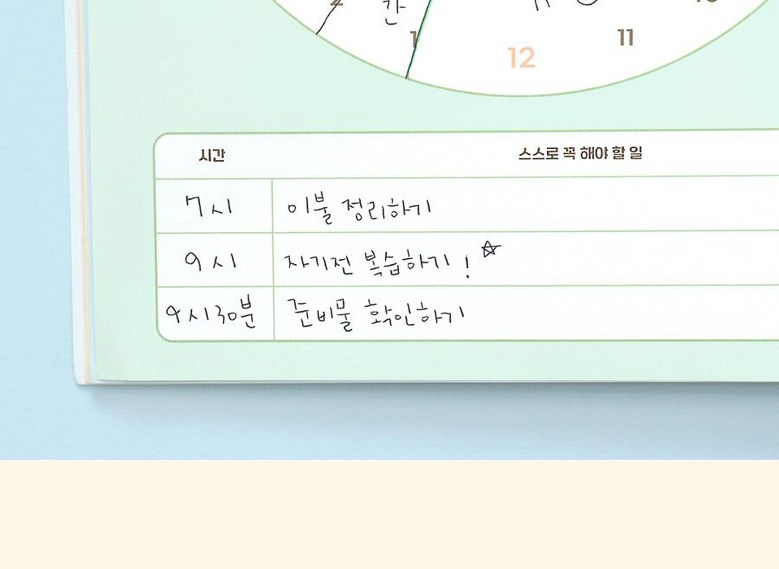 간
1
12
11
시간 스스로 꼭 해야 할 일
7시 이불 정리하기
9시 자기전 복습하기!☆
9시30분 준비물 확인하기